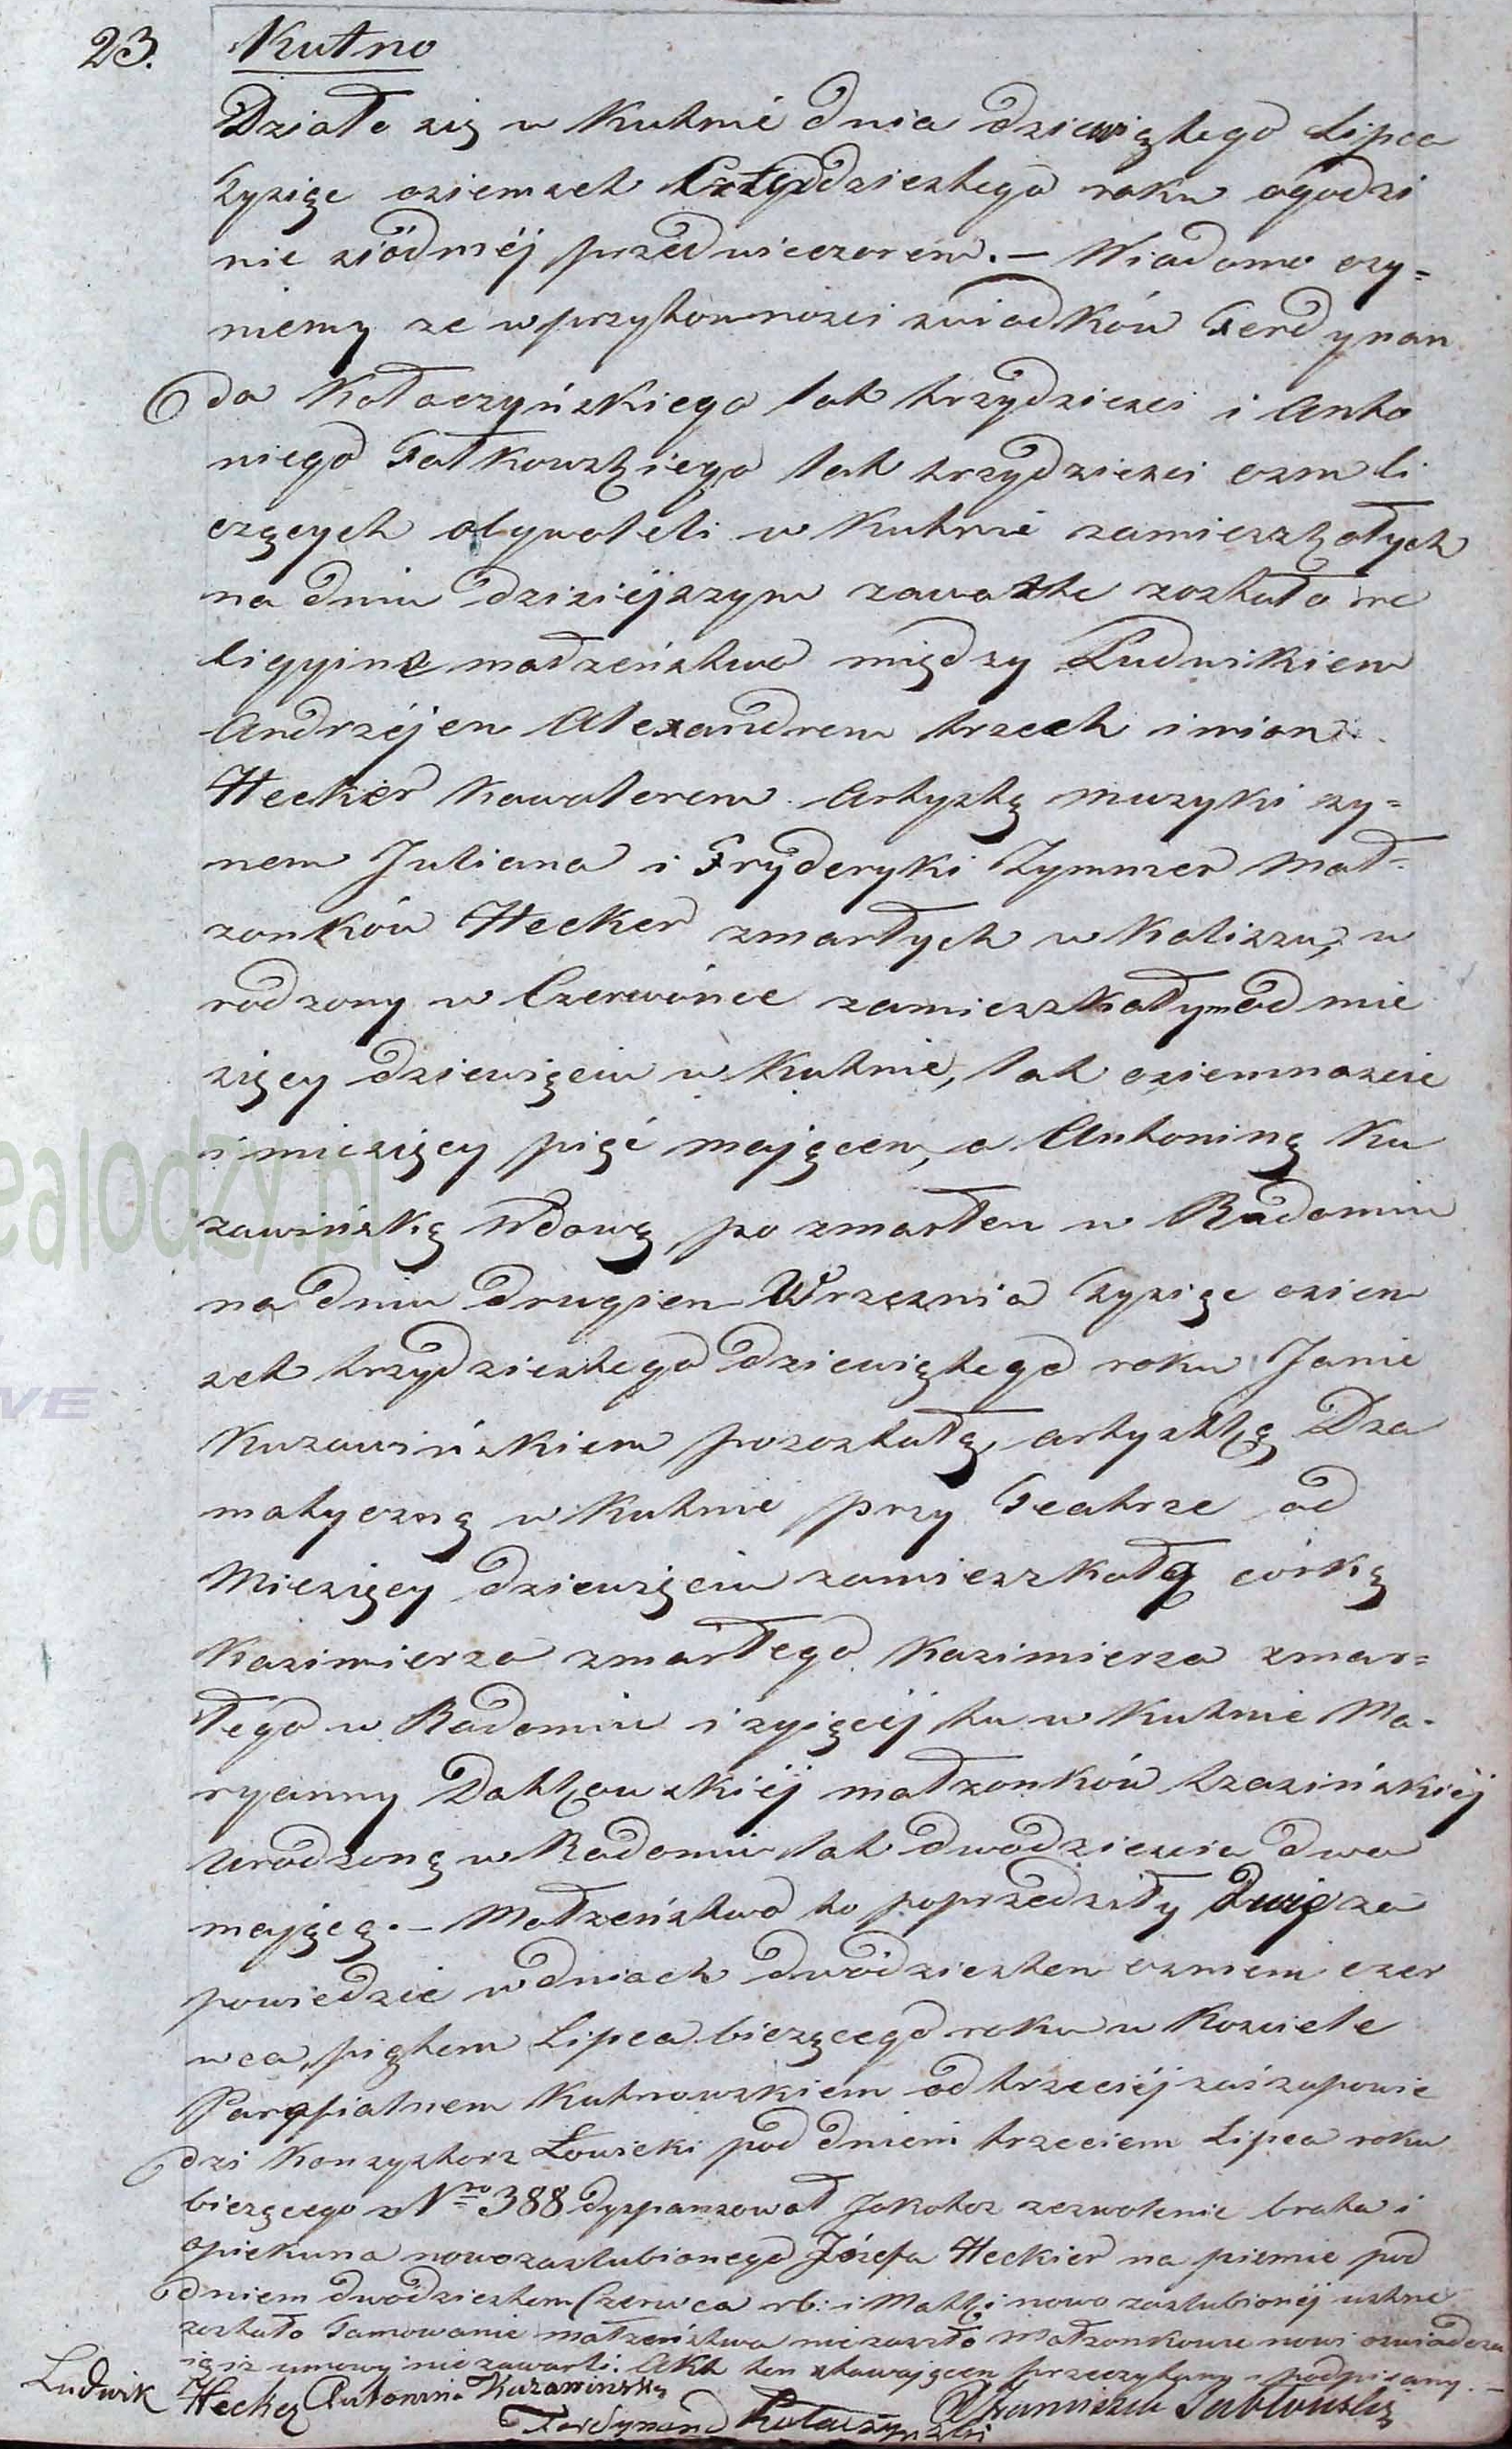 23. Kutno
Działo się w Kutnie dnia dziewiątego Lipca
Tysiąc osiemset Cztyrdziestego roku ogodzi
nie siódméj przed wieczorem. — Wiadomo czy=
niemy że w przytomności swiadków Ferdynan
da Kołaczyńskiego lat trzydzieści i Anto
niego Fałkowskiego lat trzydzieści osm li
czących obywateli w Kutnie zamieszkałych
na dniu dzisiéjszym zawarte zostało re
ligyine małżeństwo między Ludwikiem
Andrzéjem Alexandrem trzech imion
Hecker Kawalerem Artystą muzyki sy=
nem Juliana i Fryderyki Zymmer Mał=
żonków Hecker zmarłych w Kaliszu, u
rodzony w Czerwónce zamieszkałym od mie
sięcy dziewięciu w Kutnie, lat osiemnaście
i miesięcy pięć mającem, a Antoniną Ku
zawińską Wdową po zmarłem w Radomiu
na dniu drugiem Września Tysiąc osiem
set trzydziestego dziewiątego roku Janie
Kuzawińskiem pozostałą, artystką Dra
matyczną w Kutnie przy Teatrze od
Miesięcy dziewięciu zamieszkałą córką
Kazimierza zmarłego Kazimierza zmar=
łego w Radomiu i żyiącéj tu w Kutnie Ma=
ryanny małżonków
urodzoną w Radomiu lat dwadzieścia dwa
mającą. — Małżeństwo to poprzedziły Dwie za
powiedzie w dniach dwódziestem osmem czer
wca, piątem Lipca bieżącego roku w Kościele
Parafialnem Kutnowskiem od trzeciéj zaś zapowie
dzi Konsystorz Łowicki pod dniem trzeciem Lipca roku
bieżącego z Nro 388 dyspansował Jakotoż zezwolenie brata i
opiekuna nowozaslubionego Józefa Heckier na piśmie pod
dniem dwódziestem Czerwca rb: i Matki nowo zaslubionéj ustne
zostało Tamowanie małżeństwa nie zaszło Małżonkowie nowi oswiadcza
ią iż umowy nie zawarli. Akt ten stawającem przeczytany i podpisany. —
Ludwik Hecker Antonina Kuzawinska
Ferdynand Kołaczynski Franciszka Jabłońska
ealodzy.pl
VE